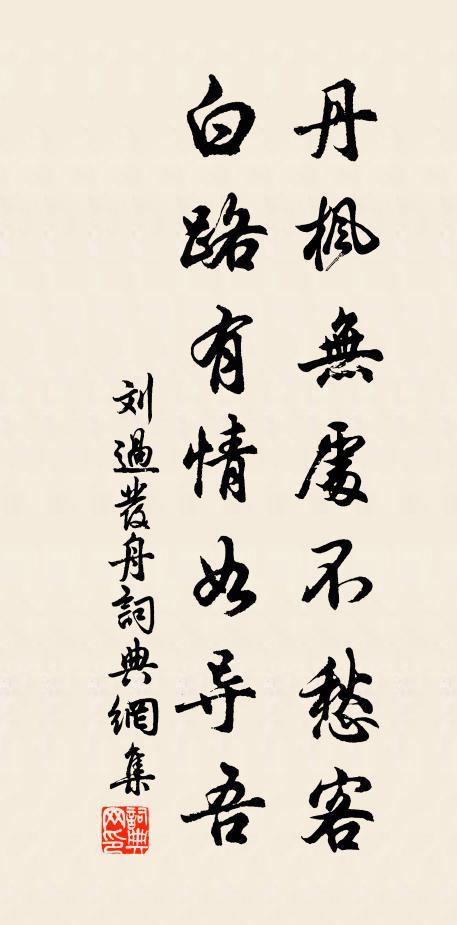 丹楓無處不愁客
白路有情如导吾
刘過發舟詞典網集
詞典網印